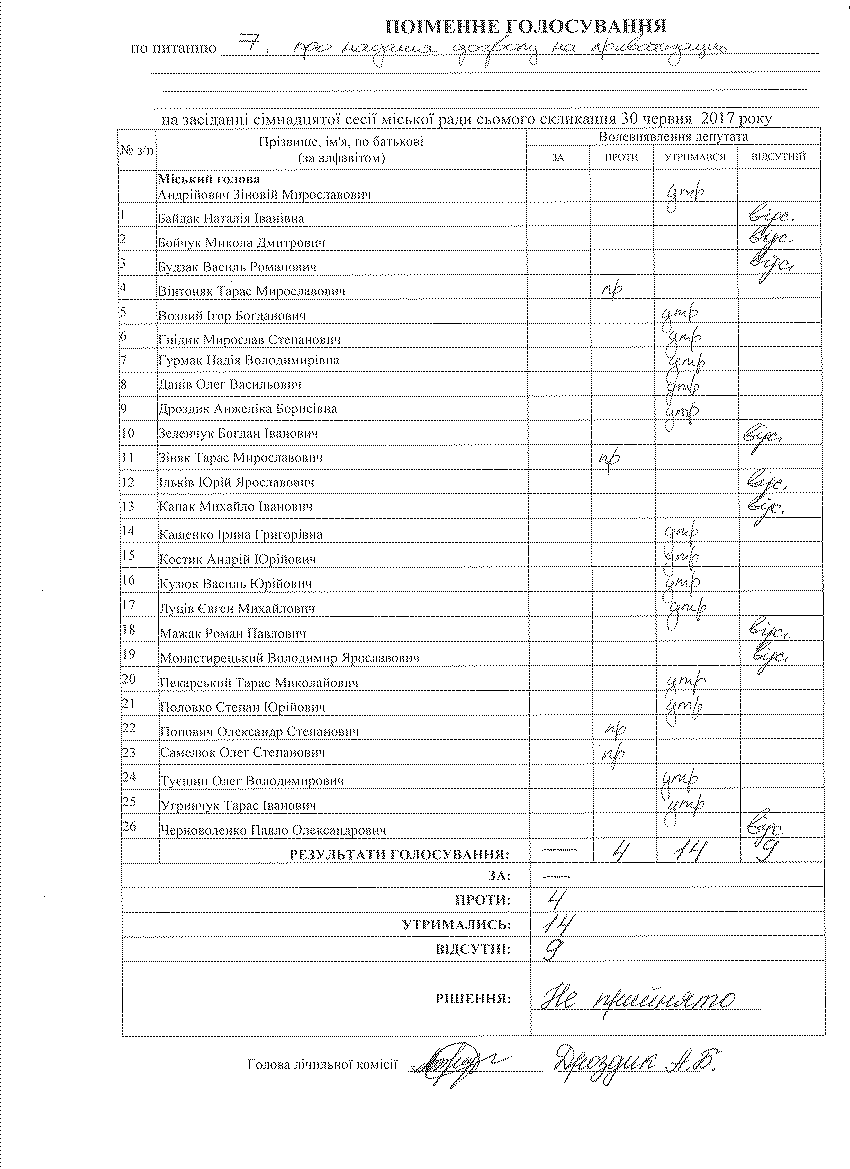 ПОІМЕННЕ ГОЛОСУВАННЯ
по питанню 7. про надання дозволу на приватизацію
на засіданні сімнадцятої сесії міської ради сьомого скликання 30 червня 2017 року
№ з/п Прізвище, ім'я, по батькові (за алфавітом) Волевиявлення депутата
ЗА ПРОТИ УТРИМАВСЯ ВІДСУТНІЙ
Міський голова
Андрійович Зіновій Мирославович утр
1 Байдак Наталія Іванівна відс.
2 Бойчук Микола Дмитрович відс.
3 Будзак Василь Романович відс.
4 Вінтоняк Тарас Мирославович пр
5 Возний Ігор Богданович утр
6 Гнідик Мирослав Степанович утр
7 Гурмак Надія Володимирівна утр
8 Данів Олег Васильович утр
9 Дроздик Анжеліка Борисівна утр
10 Зеленчук Богдан Іванович відс.
11 Зіняк Тарас Мирославович пр
12 Ільків Юрій Ярославович відс.
13 Капак Михайло Іванович відс.
14 Кащенко Ірина Григорівна утр
15 Костик Андрій Юрійович утр
16 Кузюк Василь Юрійович утр
17 Луців Євген Михайлович утр
18 Мажак Роман Павлович відс.
19 Монастирецький Володимир Ярославович відс.
20 Пекарський Тарас Миколайович утр
21 Половко Степан Юрійович утр
22 Попович Олександр Степанович пр
23 Самелюк Олег Степанович пр
24 Туєшин Олег Володимирович утр
25 Угринчук Тарас Іванович утр
26 Черноволенко Павло Олександрович відс
РЕЗУЛЬТАТИ ГОЛОСУВАННЯ: — 4 14 9
ЗА: —
ПРОТИ: 4
УТРИМАЛИСЬ: 14
ВІДСУТНІ: 9
РІШЕННЯ: Не прийнято
Голова лічильної комісії Дроздик А.Б.